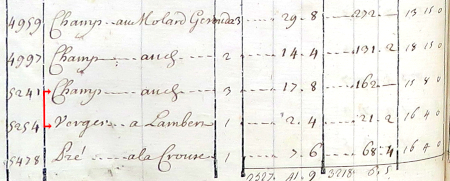 4959 Champ au Molard Geroud 3 29.8 292 13 15 0
4997 Champ auch 2 14.4 131.2 18 15 0
5241 Champ auch 3 17.8 162 15 8 0
5254 Verger a Lambert 1 2.4 21.2 16 4 0
5478 Pré ala Crouse 1 7.6 68.4 16 4 0
2527 41.9 3218 6.5